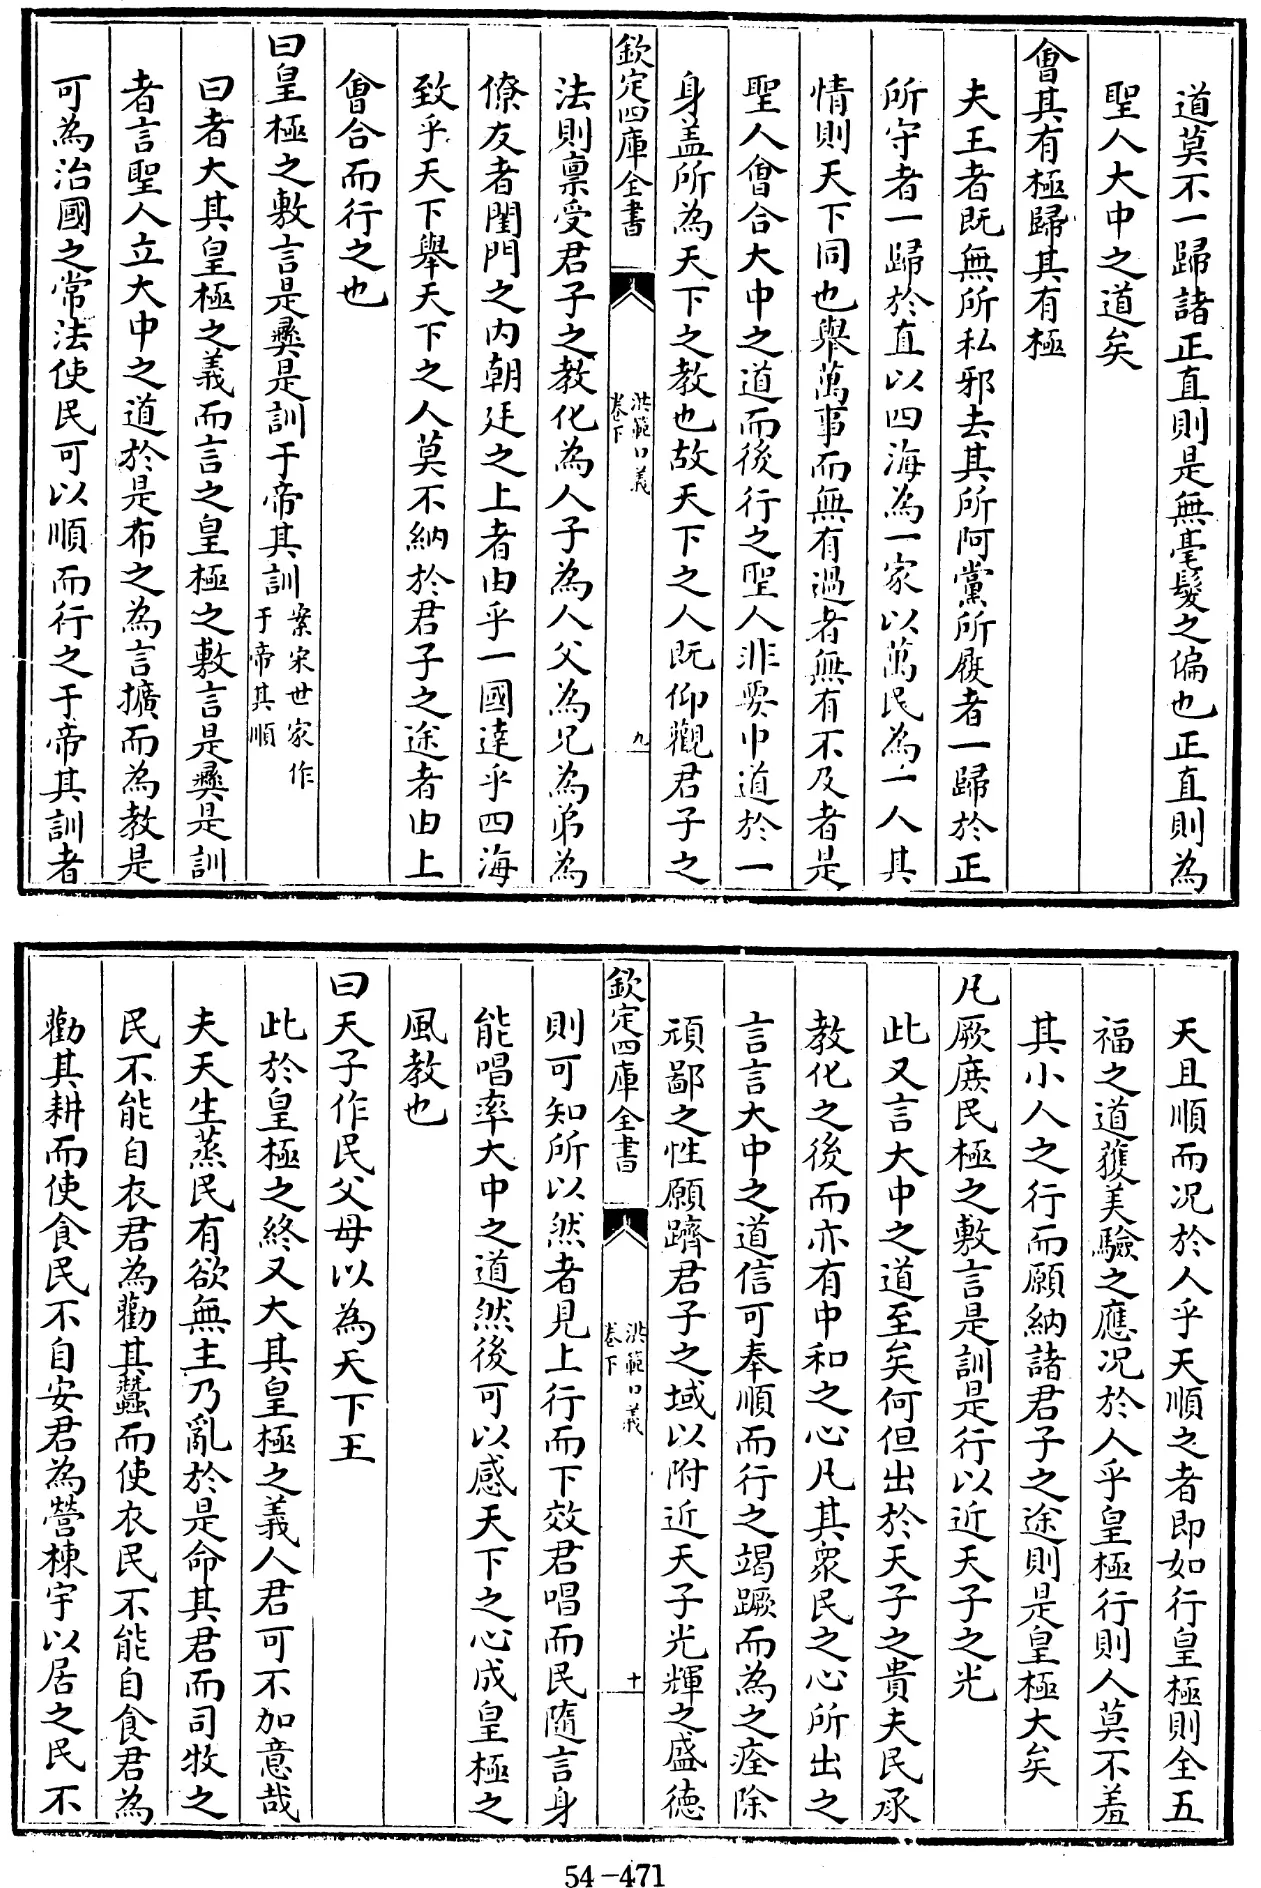 道莫不一歸諸正直則是無毫髮之偏也正直則為
聖人大中之道矣
會其有極歸其有極
夫王者既無所私邪去其所阿黨所履者一歸於正
所守者一歸於直以四海為一家以萬民為一人其
情則天下同也舉萬事而無有過者無有不及者是
聖人會合大中之道而後行之聖人非要中道於一
身蓋所為天下之教也故天下之人既仰觀君子之
欽定四庫全書
洪範口義
卷下
九
法則稟受君子之教化為人子為人父為兄為弟為
僚友者閨門之内朝廷之上者由乎一國達乎四海
致乎天下舉天下之人莫不納於君子之途者由上
會合而行之也
曰皇極之敷言是彝是訓于帝其訓案宋世家作
于帝其順
曰者大其皇極之義而言之皇極之敷言是彝是訓
者言聖人立大中之道於是布之為言擴而為教是
可為治國之常法使民可以順而行之于帝其訓者
天且順而况於人乎天順之者即如行皇極則全五
福之道獲美驗之應况於人乎皇極行則人莫不羞
其小人之行而願納諸君子之途則是皇極大矣
凡厥庶民極之敷言是訓是行以近天子之光
此又言大中之道至矣何但出於天子之貴夫民承
教化之後而亦有中和之心凡其衆民之心所出之
言言大中之道信可奉順而行之竭蹶而為之痊除
頑鄙之性願躋君子之域以附近天子光輝之盛德
欽定四庫全書
洪範口義
卷下
十
則可知所以然者見上行而下效君唱而民隨言身
能唱率大中之道然後可以感天下之心成皇極之
風教也
曰天子作民父母以為天下王
此於皇極之終又大其皇極之義人君可不加意哉
夫天生蒸民有欲無主乃亂於是命其君而司牧之
民不能自衣君為勸其蠶而使衣民不能自食君為
勸其耕而使食民不自安君為營棟宇以居之民不
54-471